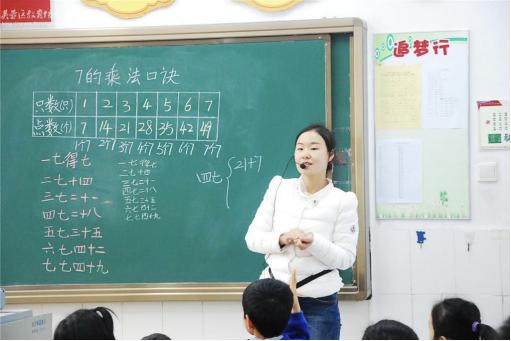 追梦行
7的乘法口诀
只数(只) 1 2 3 4 5 6 7
点数(个) 7 14 21 28 35 42 49
1个7 2个7 3个7 4个7 5个7 6个7 7个7
一七得七
二七十四
三七二十一
四七二十八
五七三十五
六七四十二
七七四十九
一七得七
二七十四
三七二十一
四七二十八
五七三十五
六七四十二
七七四十九
四七